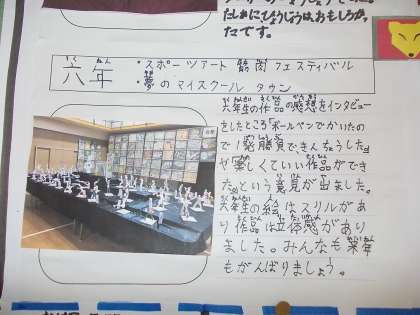 たしかにひょうじょうは、おもしろかっ
たです。
六年
・スポーツアート 筋肉フェスティバル
・夢のマイスクールタウン
六年生の作品の感想をインタビュー
をしたところ「ボールペンでかいたの
で一発勝負で、きんちょうした。」
や「楽しくていい作品ができ
た。」という意見が出ました。
六年生の絵はスリルがあ
り作品は立体感があり
ました。みんなも来年
もがんばりましょう。